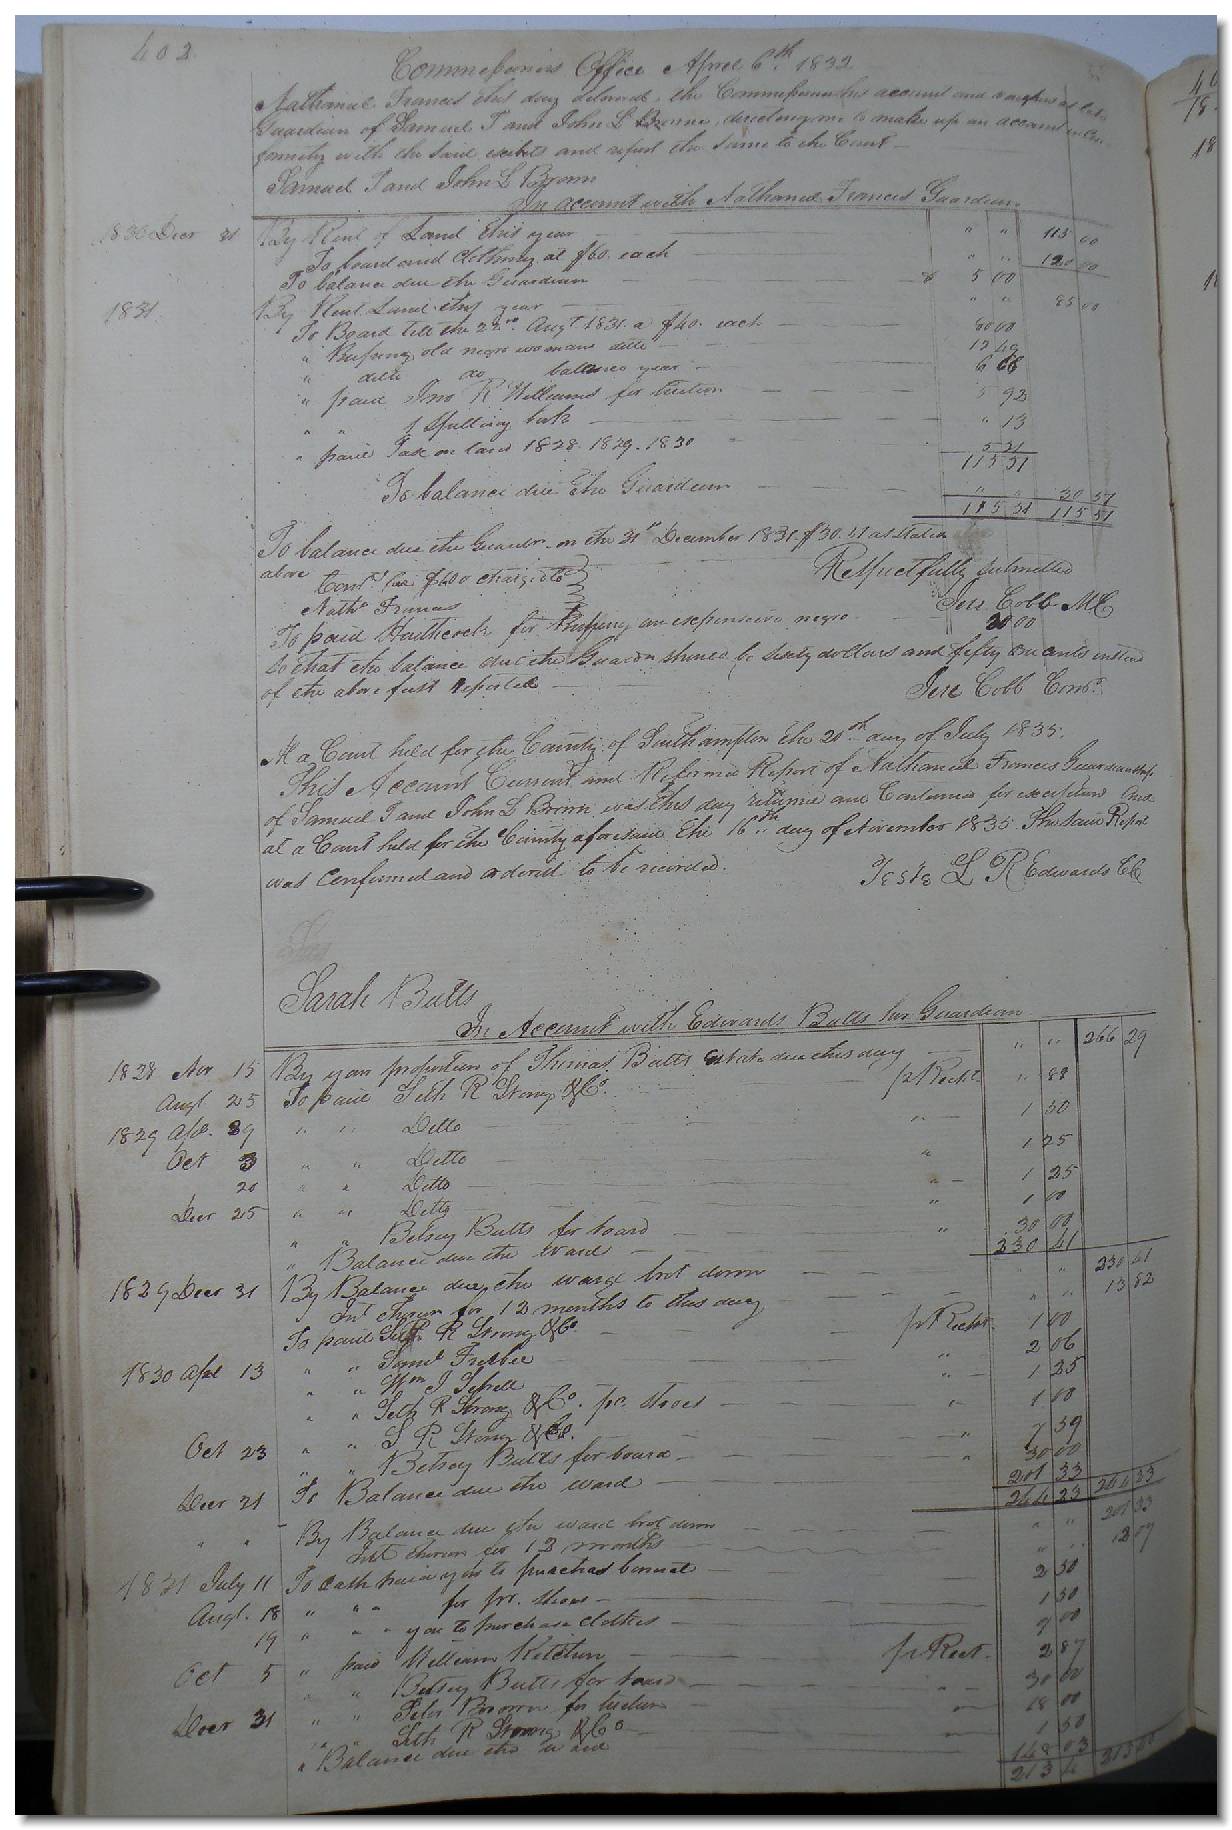 402
Commissioners Office April 6th 1832
Nathaniel Francis this day delivered the Commissioner his account and vouchers as late
Guardian of Samuel T and John L Brown, directing me to make up an account in Con-
formity with the said exhibits and report the same to the Court —
Samuel T and John L Brown
In account with Nathaniel Francis Guardian
1830 Decr 31 By Rent of Land this year — " " 115 00
To board and clothing at $60. each — " " 120 00
To balance due the Guardian — 5 00
1831. By Rent Land this year — " " 85 00
To Board till the 22nd Augt 1831 a $40. each — 80 00
" Keeping old negro woman ditto — 12 49
" ditto do ballance year — 6 66
" paid Jno R Williams for tuition — 5 92
" " 1 Spelling book — " 13
" paid Tax on land 1828. 1829. 1830 5 31
115 51
To balance due the Guardian — " " 30 51
115 51 115 51
To balance due the Guardn. on the 31st December 1831 $30.51 as stated
above Respectfully submitted
Coms
Nathl Francis Jere Cobb MC
To paid Hathcock for keeping an expensive negro 30 00
So that the balance due the Guardn should be sixty dollars and fifty one cents instead
of the above just reported — Jere Cobb Comr.
At a Court held for the County of Southampton the 20th day of July 1835.
This Account Current and Reformed Report of Nathaniel Francis Guardianship
of Samuel T and John L Brown was this day returned and Continued for exceptions And
at a Court held for the County aforesaid the 16th day of November 1835 The said Report
was Confirmed and ordered to be recorded. Teste L R Edwards CC
Sarah Butts
In Account with Edwards Butts her Guardian
1828 Nov 15 By your proportion of Thomas Butts Estate due this day — " " 266 29
Augt 25 To paid Seth R Strong & Co. — pr Rect. " 88
1829 Apl. 29 " " Ditto — " 1 50
Oct 3 " " Ditto — " 1 25
20 " " Ditto — " 1 25
Decr 25 " " Ditto — " 1 00
" " Betsey Butts for board — " 30 00
" Balance due the ward — 230 41
1829 Decr 31 By Balance due the ward brot down — " " 230 41
Int thereon for 12 months to this day — " " 13 82
To paid Seth R Strong & Co. — pr Rect. 1 00
1830 Apl 13 " " Saml Frisbee — " 2 06
" " Wm J — " 1 25
" " Seth R Strong & Co. pr. shoes — 1 00
Oct 23 " " S R Strong & Co. — " 7 59
" " Betsey Butts for board — " 30 00
Decr 21 To Balance due the ward — 201 33
244 23 244 23
" " By Balance due the ward brot down — " " 201 33
Int thereon for 12 months — " " 12 07
1831 July 11 To Cash paid you to purchase bonnet — 2 50
Augt. 18 " " " for pr. shoes — 1 50
19 " " " you to purchase clothes — 9 00
Oct 5 " paid William Kitchen — pr Rect. 2 87
" " Betsey Butts for board — " 30 00
Decr 31 " " Brown for tuition — " 18 00
" " Seth R Strong & Co — 1 50
" Balance due the ward 148 03
213 4